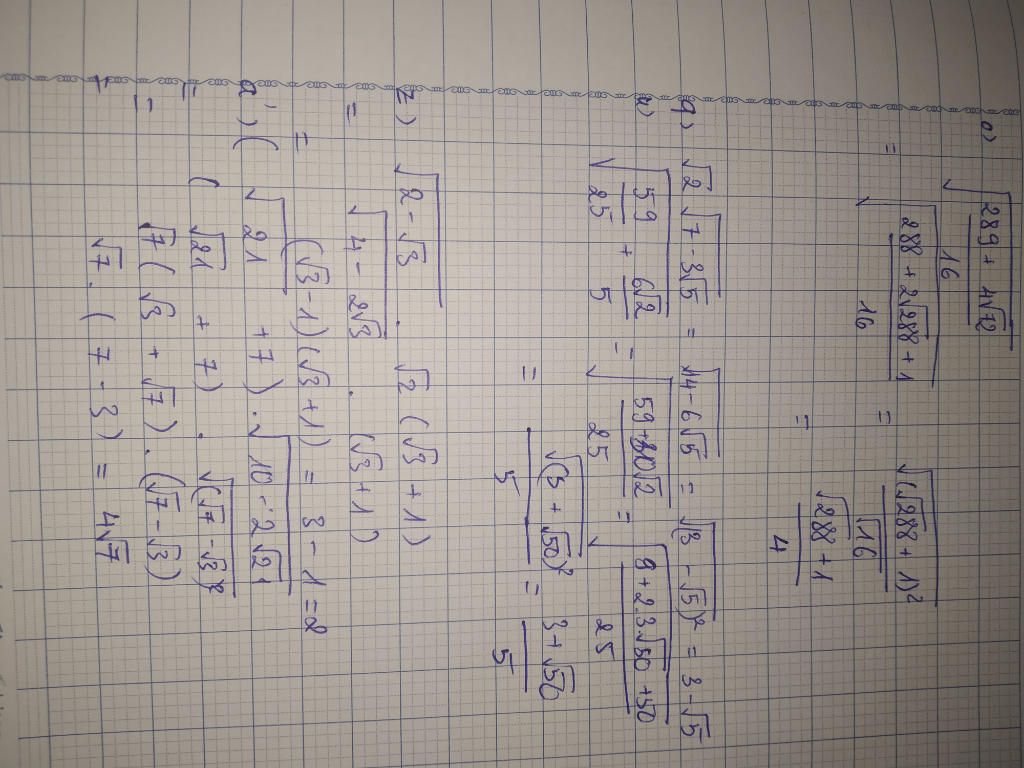 o) √((289 + 4√72)/16)
= √((288 + 2√288 + 1)/16) = √((√288 + 1)²)/√16
= (√288 + 1)/4
q) √2 √(7 - 3√5) = √(14 - 6√5) = √((3 - √5)²) = 3 - √5
u) √(59/25 + 6√2/5) = √((59 + 30√2)/25) = √((9 + 2.3√50 + 50)/25)
= √((3 + √50)²)/5 = (3 + √50)/5
z) √(2 - √3) . √2 (√3 + 1)
= √(4 - 2√3) . (√3 + 1)
= (√3 - 1)(√3 + 1) = 3 - 1 = 2
a') (√21 + 7) . √(10 - 2√21)
= (√21 + 7) . √((√7 - √3)²)
= √7 (√3 + √7) . (√7 - √3)
= √7 . (7 - 3) = 4√7